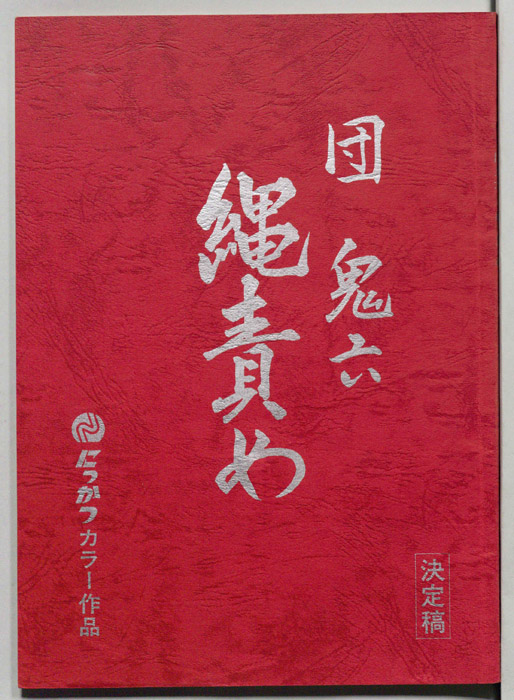 団 鬼六
縄責め
にっかつカラー作品
決定稿